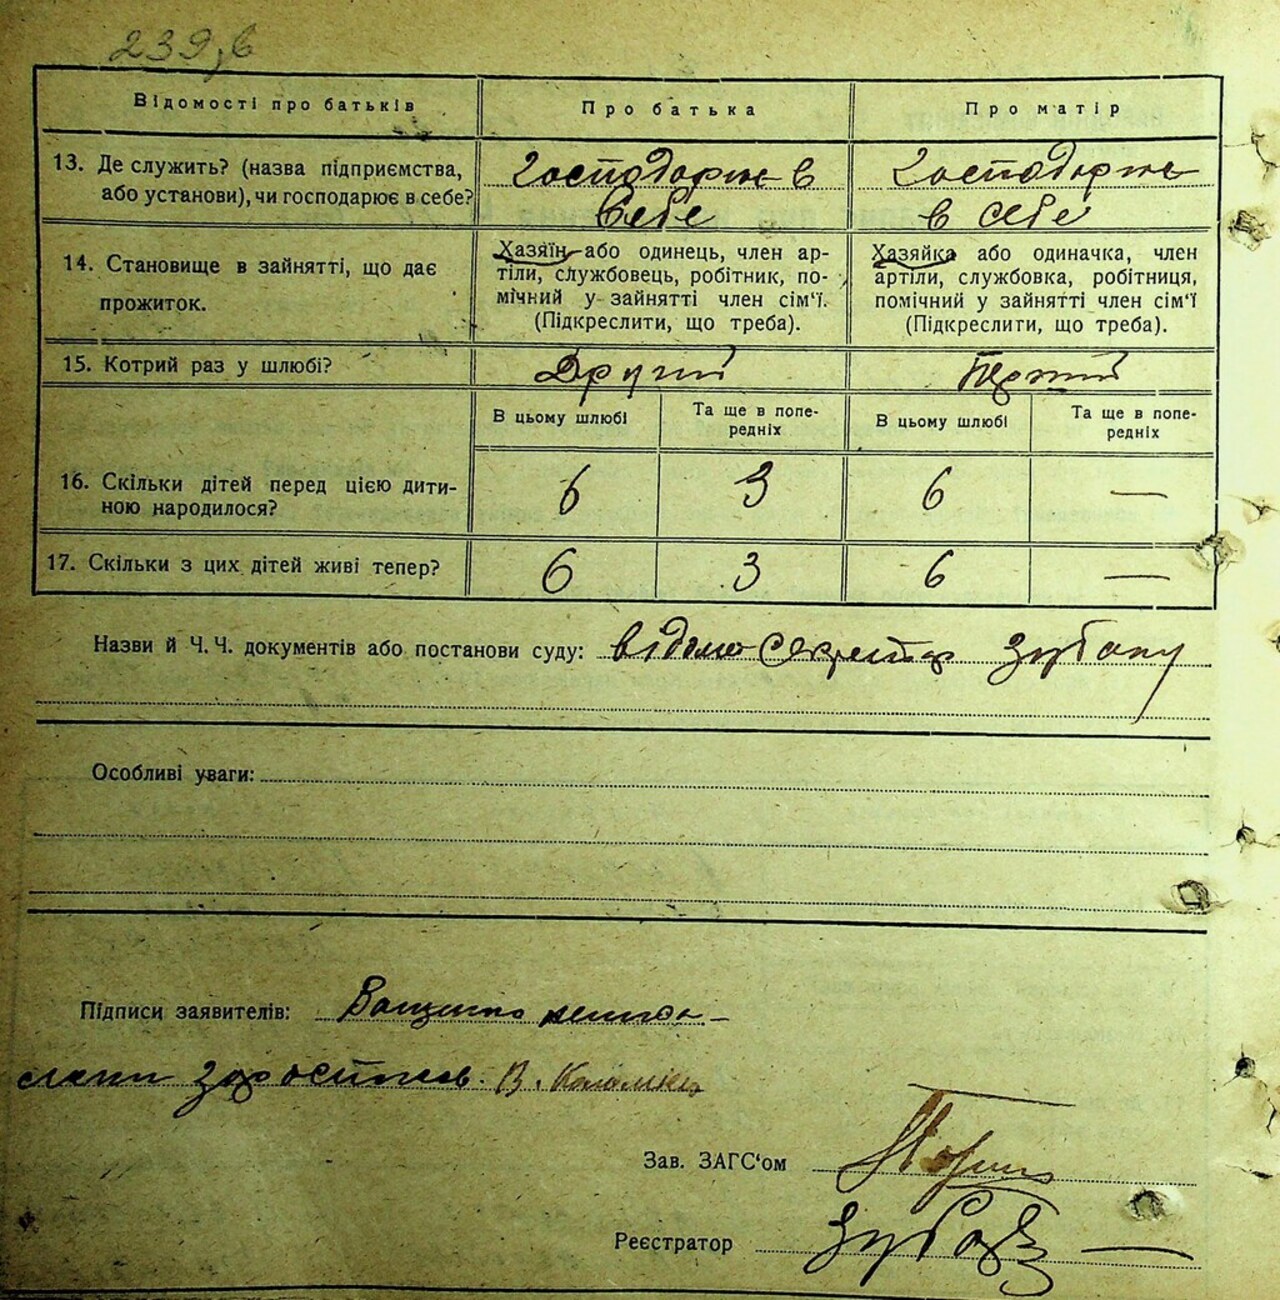 239, в
Відомості про батьків
Про батька
Про матір
13. Де служить? (назва підприємства,
або установи), чи господарює в себе?
Господарює в
себе
Господарює
в себе
14. Становище в зайнятті, що дає
прожиток.
Хазяїн або одинець, член ар-
тіли, службовець, робітник, по-
мічний у зайнятті член сім‘ї.
(Підкреслити, що треба).
Хазяйка або одиначка, член
артіли, службовка, робітниця,
помічний у зайнятті член сім‘ї
(Підкреслити, що треба).
15. Котрий раз у шлюбі?
Другий
Перший
В цьому шлюбі
Та ще в попе-
редніх
В цьому шлюбі
Та ще в попе-
редніх
16. Скільки дітей перед цією дити-
ною народилося?
6
3
6
—
17. Скільки з цих дітей живі тепер?
6
3
6
—
Назви й Ч. Ч. документів або постанови суду: відомо секретар
Особливі уваги:
Підписи заявителів:
В.
Зав. ЗАГС‘ом
Реєстратор